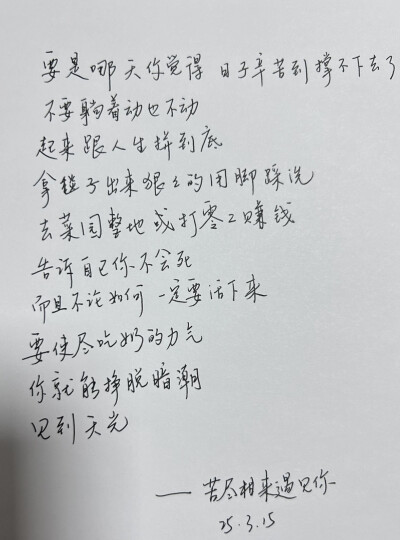 要是哪天你觉得 日子辛苦到撑不下去了
不要躺着动也不动
起来跟人生拼到底
拿毯子出来狠狠的用脚踩洗
去菜园整地或打零工赚钱
告诉自己你不会死
而且不论如何 一定要活下来
要使尽吃奶的力气
你就能挣脱暗潮
见到天光
——苦尽相来遇见你
25.3.15